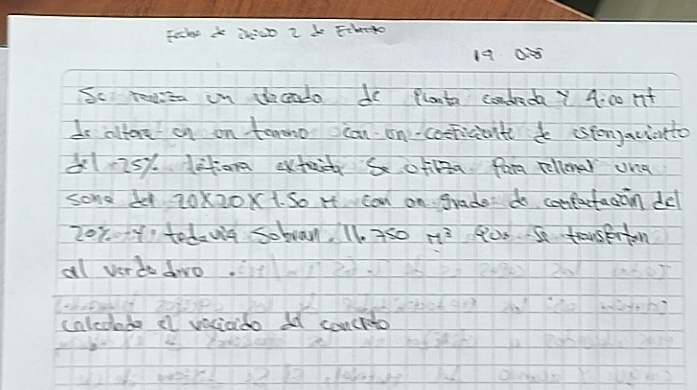 Fecha de inicio 2 de Febrero
19
Se realiza un vaciado de Planta cuadrada Y 4.00 Mt
de altura en un terreno con un coeficiente de esponjaciento
del 25% la tierra extraida Se utiliza Para rellenar una
sona del 20x20x1.50 M con un grado de compactación del
20% Y todavia Sobran 11.750 M³ que Se transfertan
al vertedero.
calculado el vaciado del concreto